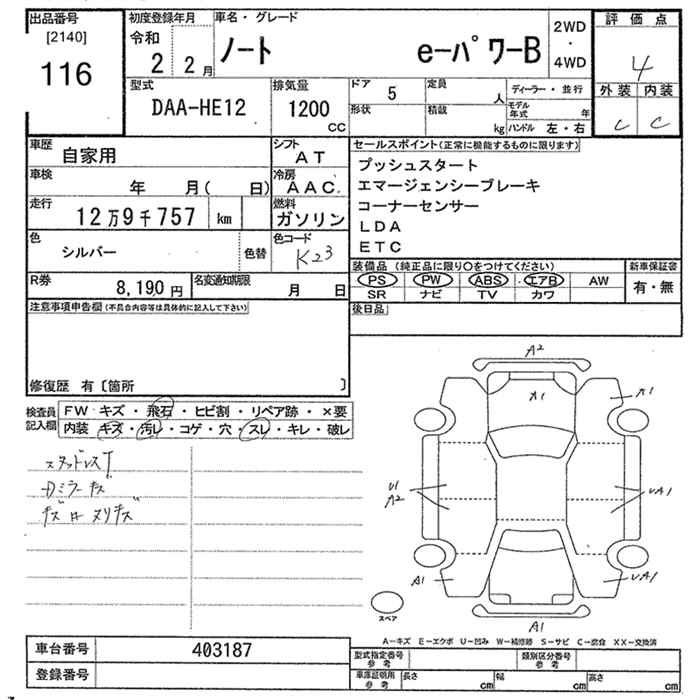 出品番号
[2140]
116
初度登録年月
令和
2 2月
車名・グレード
ノート eーパワーB
2WD
・
4WD
評価点
4
外装 内装
C C
型式
DAA-HE12
排気量
1200
CC
ドア 5
形状
定員 人
積載 kg
ディーラー・並行
モデル
年式 年
ハンドル 左・右
車歴
自家用
シフト
AT
車検
年 月( 日)
冷房
AAC
走行
12万9千757 km
燃料
ガソリン
色
シルバー
色替
色コード
K23
R券
8,190円
名変通知期限
月 日
セールスポイント(正常に機能するものに限ります)
プッシュスタート
エマージェンシーブレーキ
コーナーセンサー
LDA
ETC
装備品 (純正品に限り○をつけてください)
PS PW ABS エアB AW
SR ナビ TV カワ
新車保証書
有・無
後日品
注意事項申告欄(不具合内容等は具体的に記入して下さい)
修復歴 有〔箇所 〕
検査員
記入欄
FW キズ・飛石・ヒビ割・リペア跡・×要
内装 キズ・汚レ・コゲ・穴・スレ・キレ・破レ
スタッドレスT
Dミラーキズ
キズ有 ヌリキズ
A2
A1
A1
U1
A2
UA1
A1
UA1
A1
スペア
A-キズ E-エクボ U-凹み W-補修跡 S-サビ C-腐食 XX-交換済
車台番号
403187
登録番号
型式指定番号
参考
類別区分番号
参考
車庫証明用
参考
長さ cm
幅 cm
高さ cm